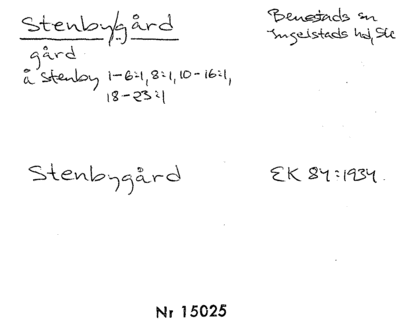 Stenby/gård
Benestads sn
gård
Ingelstads hd, Sk
å Stenby 1-6:1, 8:1, 10-16:1,
18-23:1
Stenbygård
EK 84:1934
Nr 15025